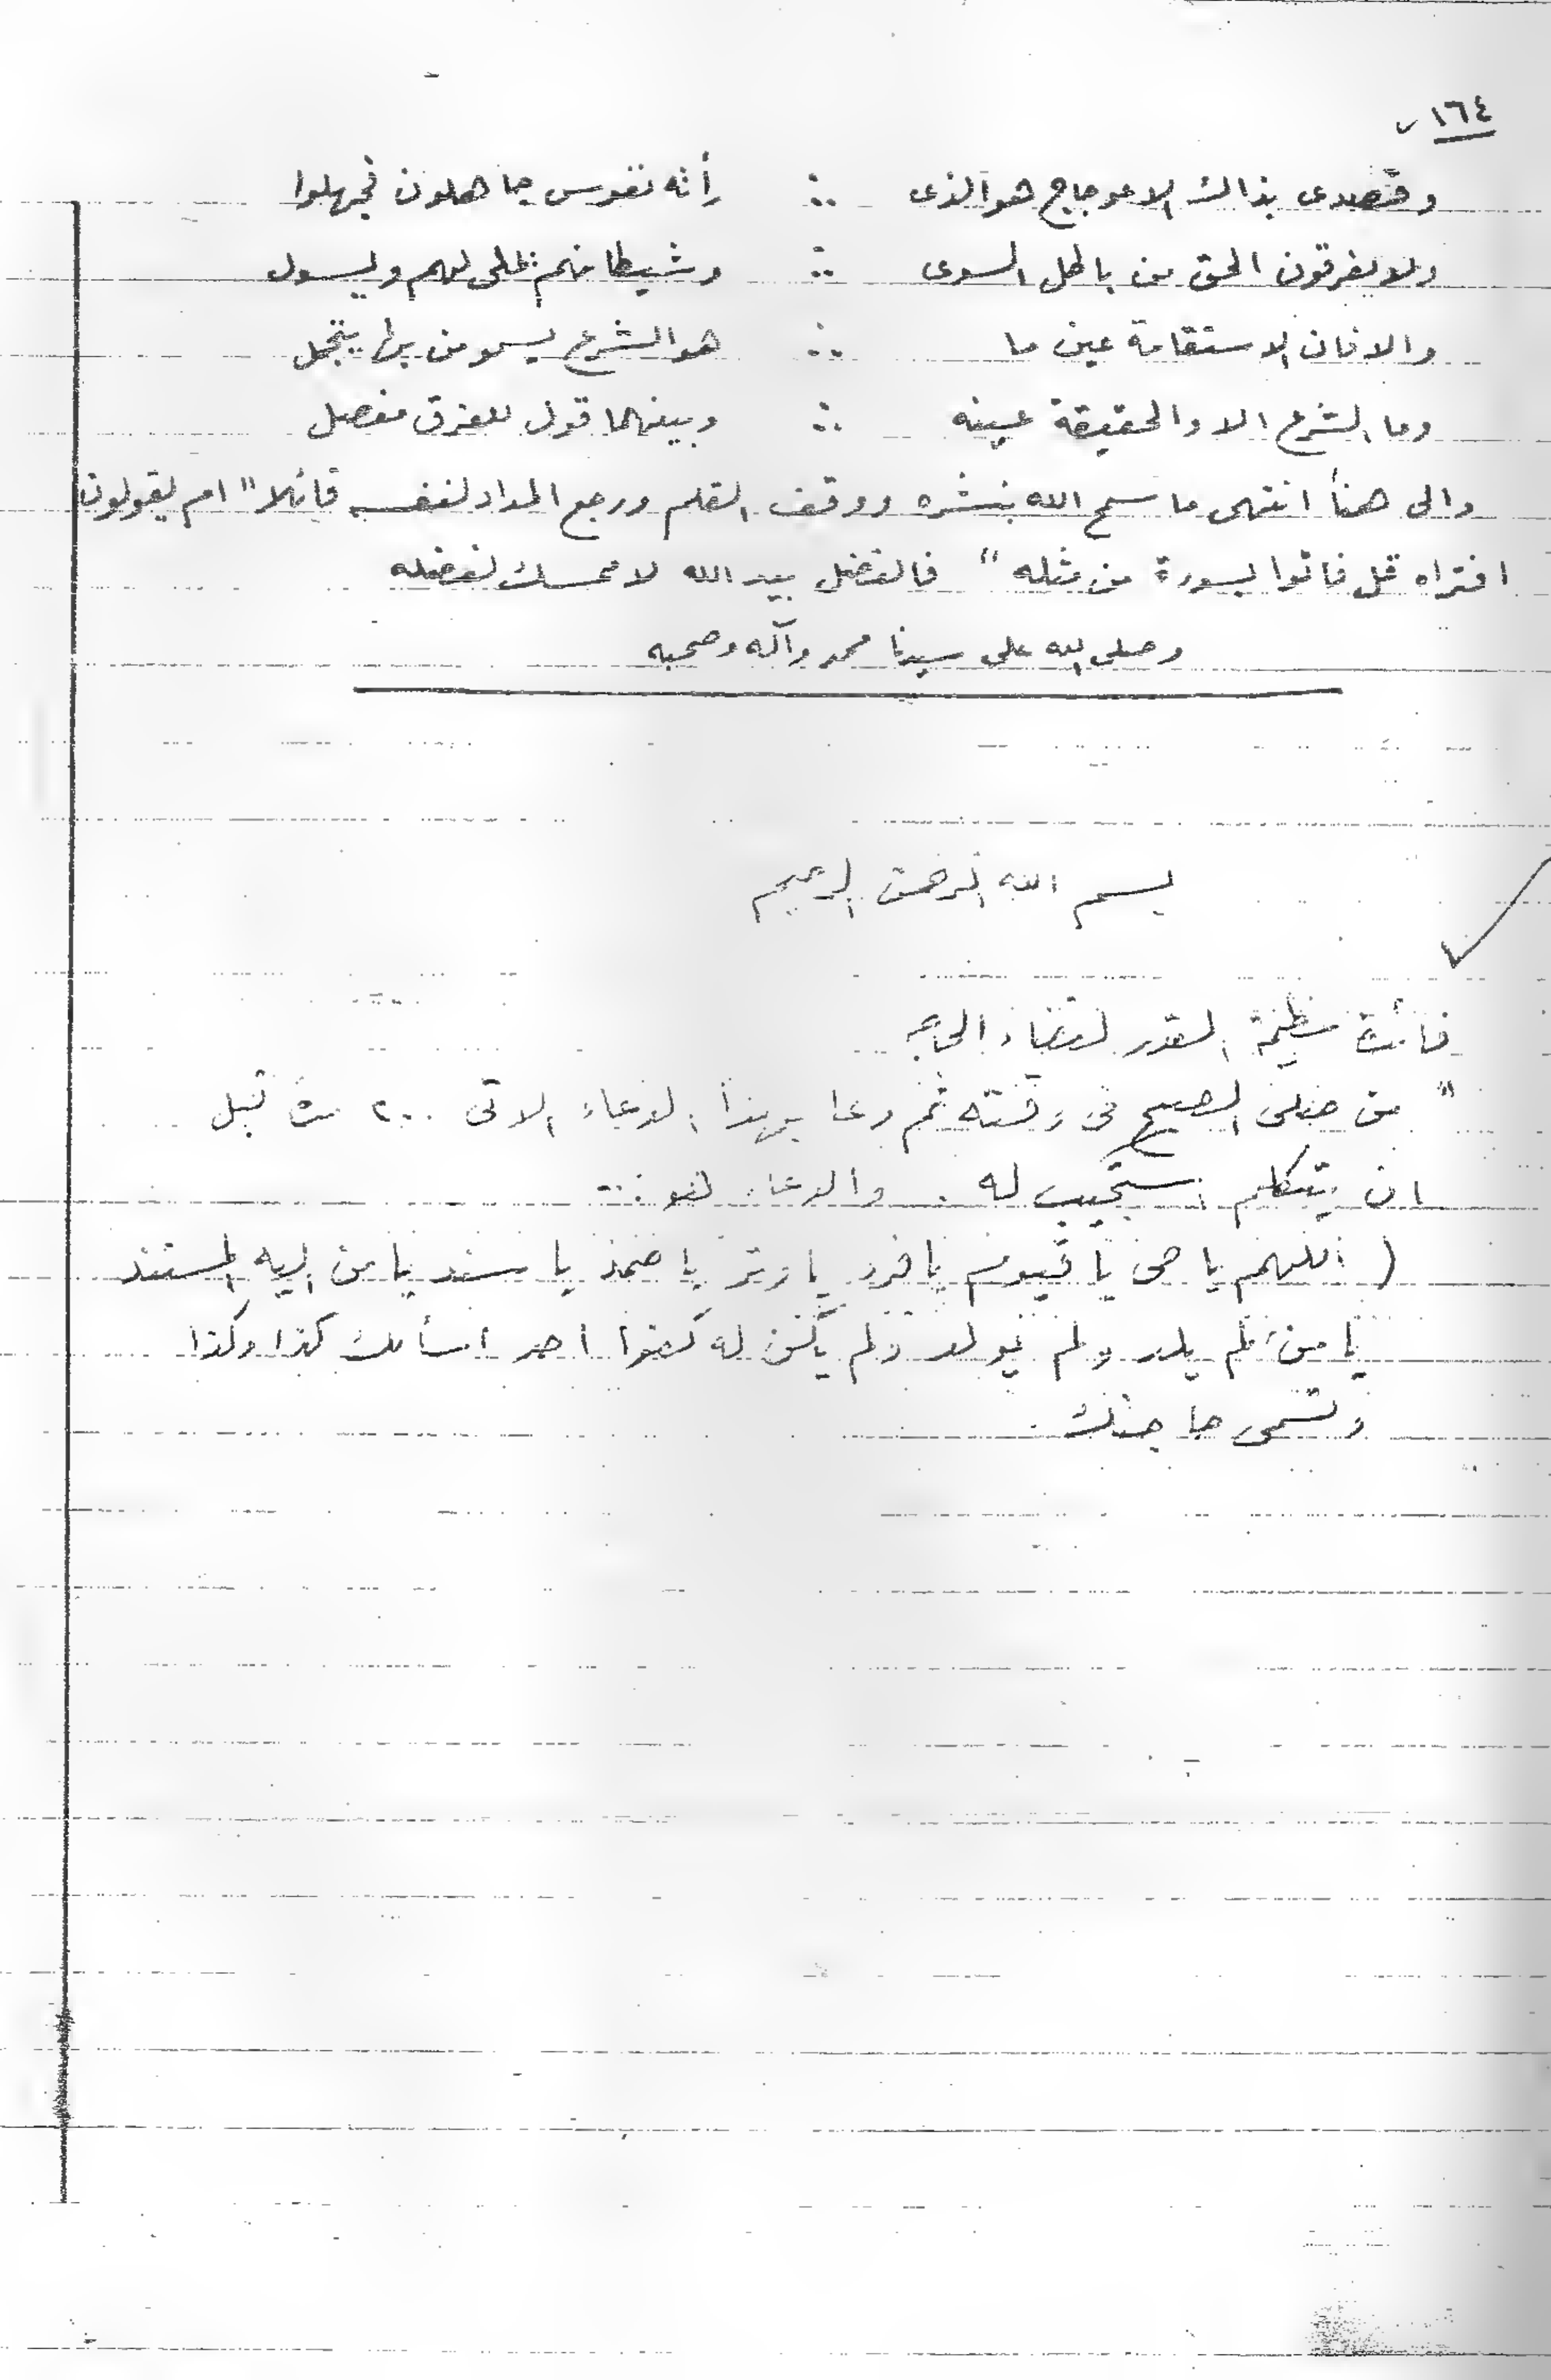 ١٦٤
وقصدى بذاك الاعوجاج هو الذى ∴ رأته نفوس جاهلون فجهلوا
ولا يفرقون الحق من باطل السوى ∴ وشيطانهم يملى لهم ويسول
والا فان الاستقامة عين ما ∴ هو الشرع يسمو من بها يتجمل
وما الشرع الا والحقيقة عينه ∴ وبينهما قول للفرق مفصل
والى هنا انتهى ما سمح الله بنشره ووقف القلم ورجع المداد لنفسه قائلا " ام يقولون
افتراه قل فاتوا بسورة من مثله " فالفضل بيد الله لا ممسك لفضله
وصلى الله على سيدنا محمد وآله وصحبه
بسم الله الرحمن الرحيم
فائدة عظيمة القدر لقضاء الحاجه
" من صلى الصبح فى وقته ثم دعا بهذا الدعاء الاتى ٢٠٠ مرة قبل
ان يتكلم استجيب له . والدعاء هو :-
( اللهم يا حى يا قيوم يا فرد يا وتر يا صمد يا سند يا من اليه المستند
يا من لم يلد ولم يولد ولم يكن له كفوا احد اسألك كذا وكذا
وتسمى حاجتك .